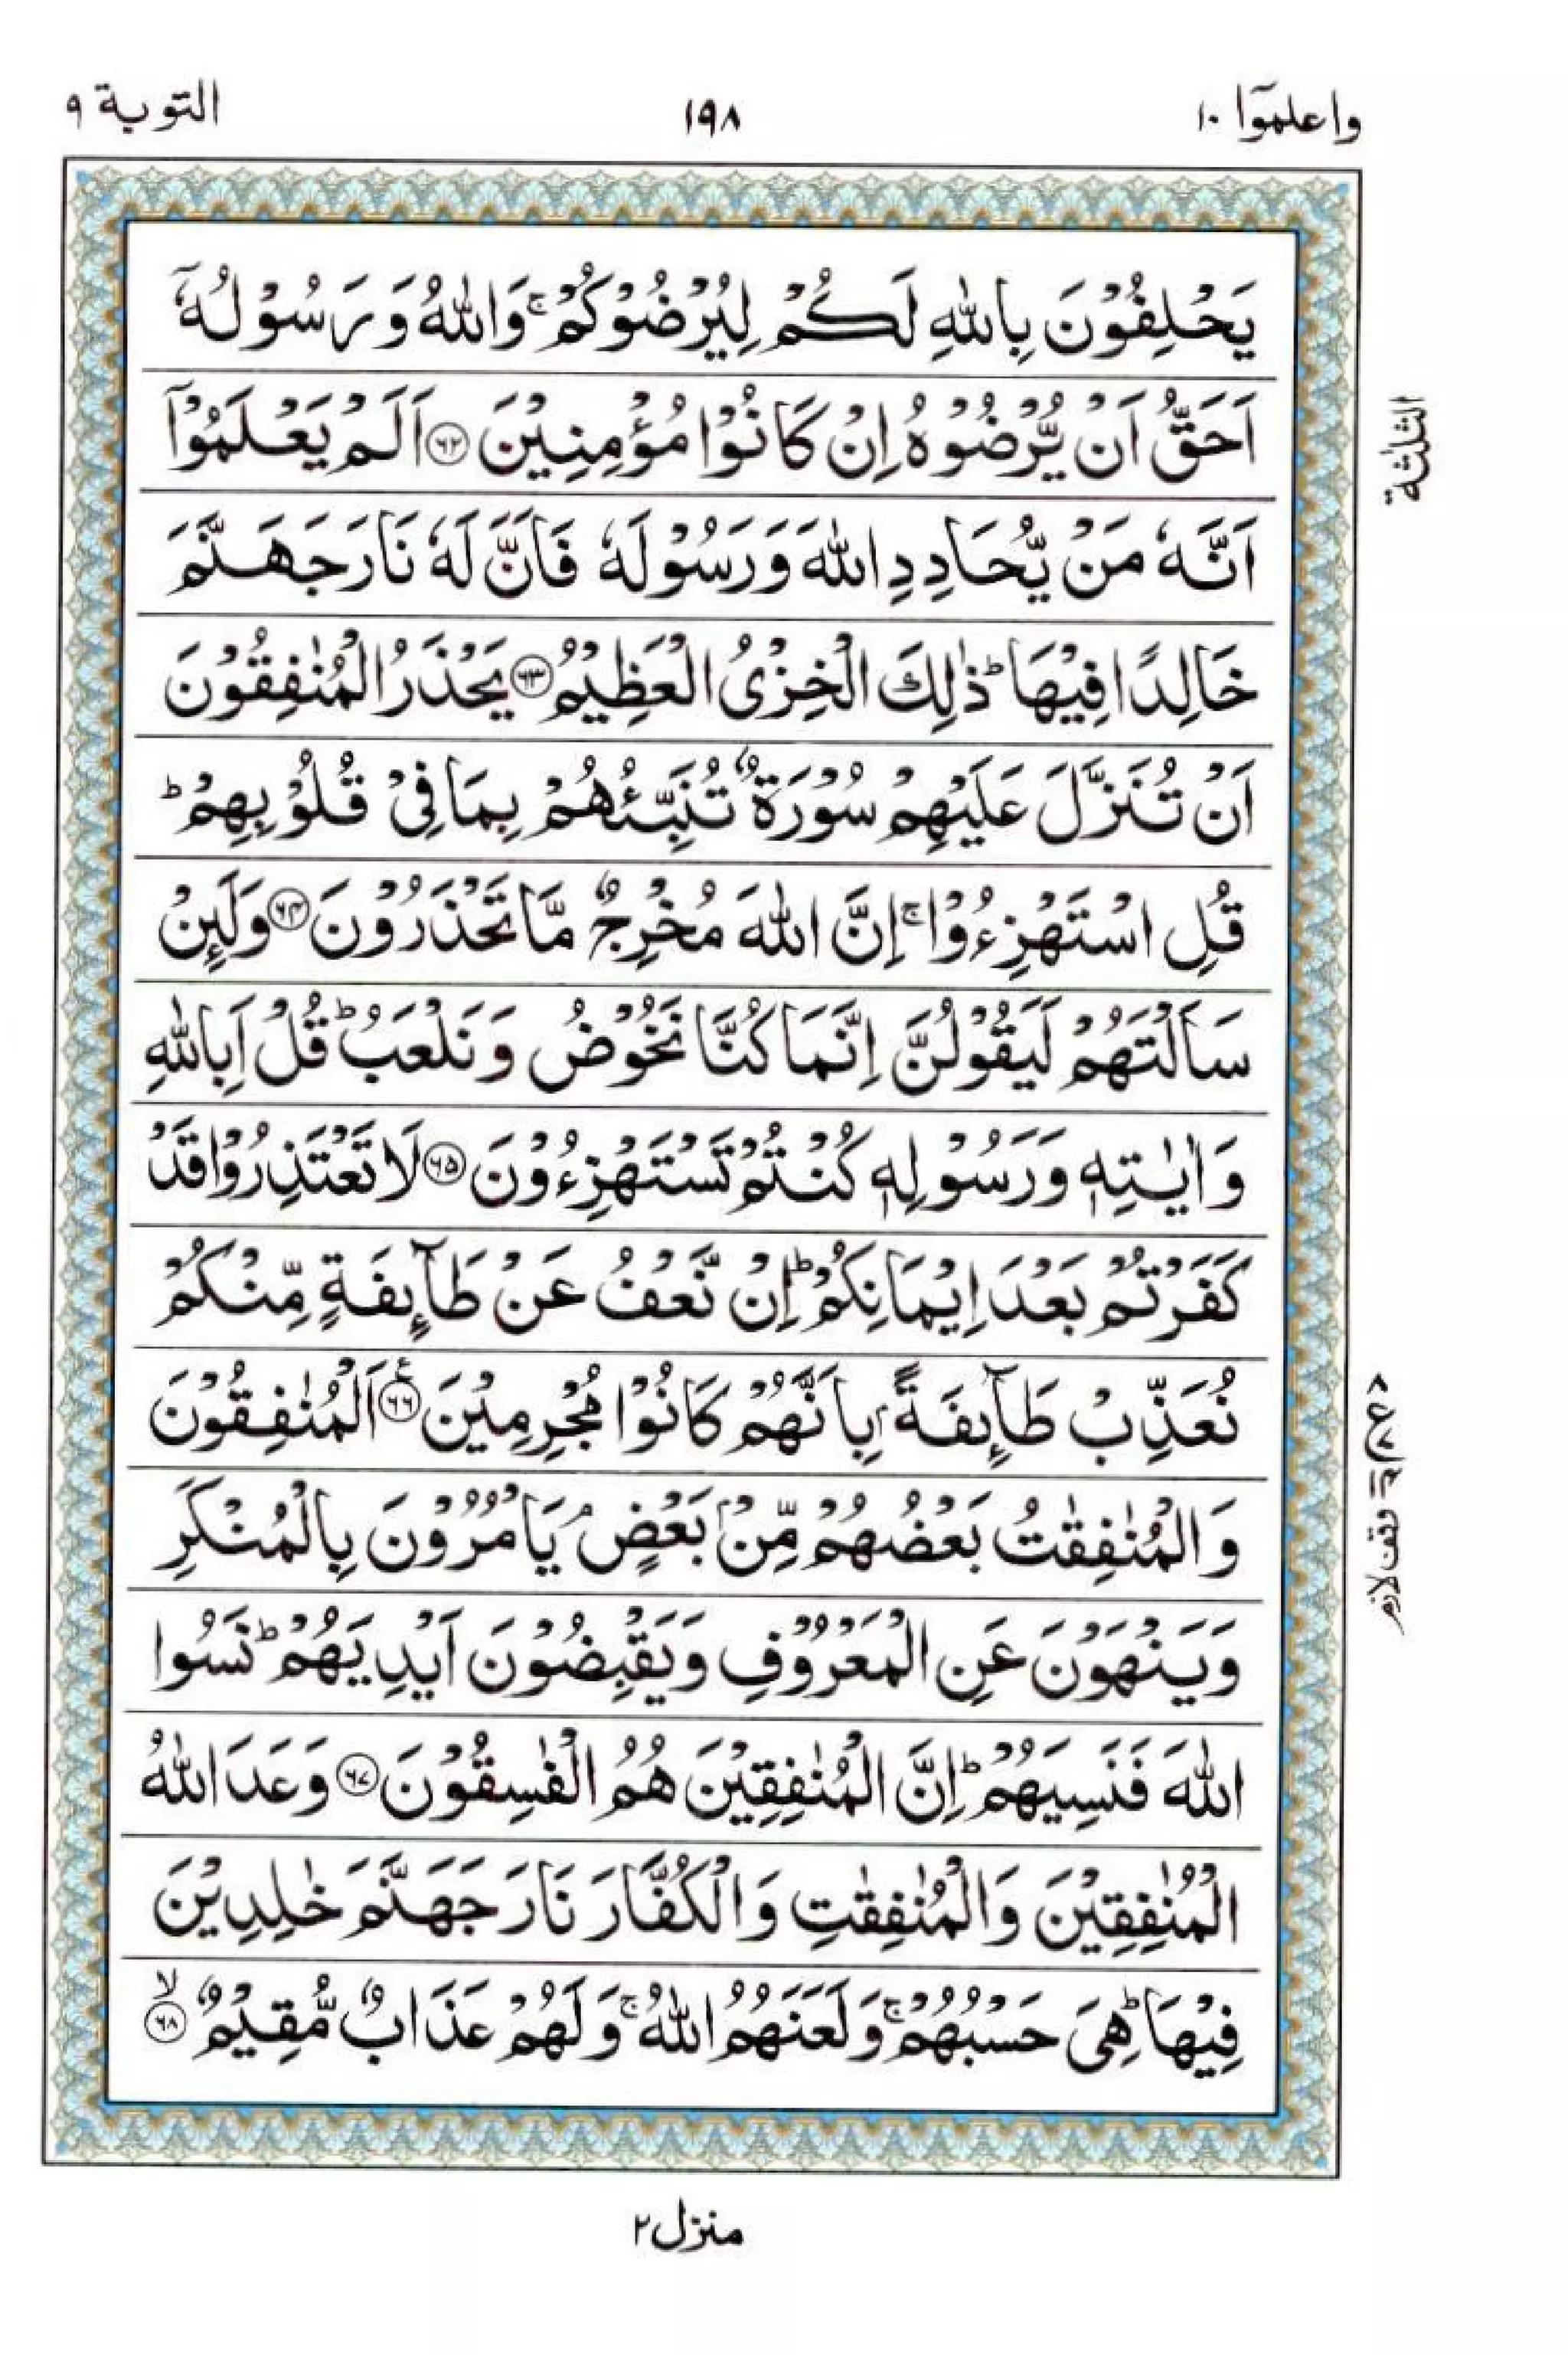 واعلموٓا ١٠
١٩٨
التوبة ٩
يَحْلِفُوْنَ بِاللّٰهِ لَكُمْ لِيُرْضُوْكُمْ ۚ وَاللّٰهُ وَرَسُوْلُهٗۤ
اَحَقُّ اَنْ يُّرْضُوْهُ اِنْ كَانُوْا مُؤْمِنِيْنَ ﴿۶۲﴾ اَلَمْ يَعْلَمُوْۤا
اَنَّهٗ مَنْ يُّحَادِدِ اللّٰهَ وَرَسُوْلَهٗ فَاَنَّ لَهٗ نَارَ جَهَنَّمَ
خَالِدًا فِيْهَا ؕ ذٰلِكَ الْخِزْىُ الْعَظِيْمُ ﴿۶۳﴾ يَحْذَرُ الْمُنٰفِقُوْنَ
اَنْ تُنَزَّلَ عَلَيْهِمْ سُوْرَةٌ تُنَبِّئُهُمْ بِمَا فِىْ قُلُوْبِهِمْ ؕ
قُلِ اسْتَهْزِءُوْا ۚ اِنَّ اللّٰهَ مُخْرِجٌ مَّا تَحْذَرُوْنَ ﴿۶۴﴾ وَلَئِنْ
سَاَلْتَهُمْ لَيَقُوْلُنَّ اِنَّمَا كُنَّا نَخُوْضُ وَنَلْعَبُ ؕ قُلْ اَبِاللّٰهِ
وَاٰيٰتِهٖ وَرَسُوْلِهٖ كُنْتُمْ تَسْتَهْزِءُوْنَ ﴿۶۵﴾ لَا تَعْتَذِرُوْا قَدْ
كَفَرْتُمْ بَعْدَ اِيْمَانِكُمْ ؕ اِنْ نَّعْفُ عَنْ طَآئِفَةٍ مِّنْكُمْ
نُعَذِّبْ طَآئِفَةًۢ بِاَنَّهُمْ كَانُوْا مُجْرِمِيْنَ ﴿۶۶﴾ع اَلْمُنٰفِقُوْنَ
وَالْمُنٰفِقٰتُ بَعْضُهُمْ مِّنْۢ بَعْضٍ ۘ يَاْمُرُوْنَ بِالْمُنْكَرِ
وَيَنْهَوْنَ عَنِ الْمَعْرُوْفِ وَيَقْبِضُوْنَ اَيْدِيَهُمْ ؕ نَسُوا
اللّٰهَ فَنَسِيَهُمْ ؕ اِنَّ الْمُنٰفِقِيْنَ هُمُ الْفٰسِقُوْنَ ﴿۶۷﴾ وَعَدَ اللّٰهُ
الْمُنٰفِقِيْنَ وَالْمُنٰفِقٰتِ وَالْكُفَّارَ نَارَ جَهَنَّمَ خٰلِدِيْنَ
فِيْهَا ؕ هِىَ حَسْبُهُمْ ۚ وَلَعَنَهُمُ اللّٰهُ ۚ وَلَهُمْ عَذَابٌ مُّقِيْمٌ ﴿۶۸﴾ۙ
الثلٰثة
وقف لازم
منزل ٢